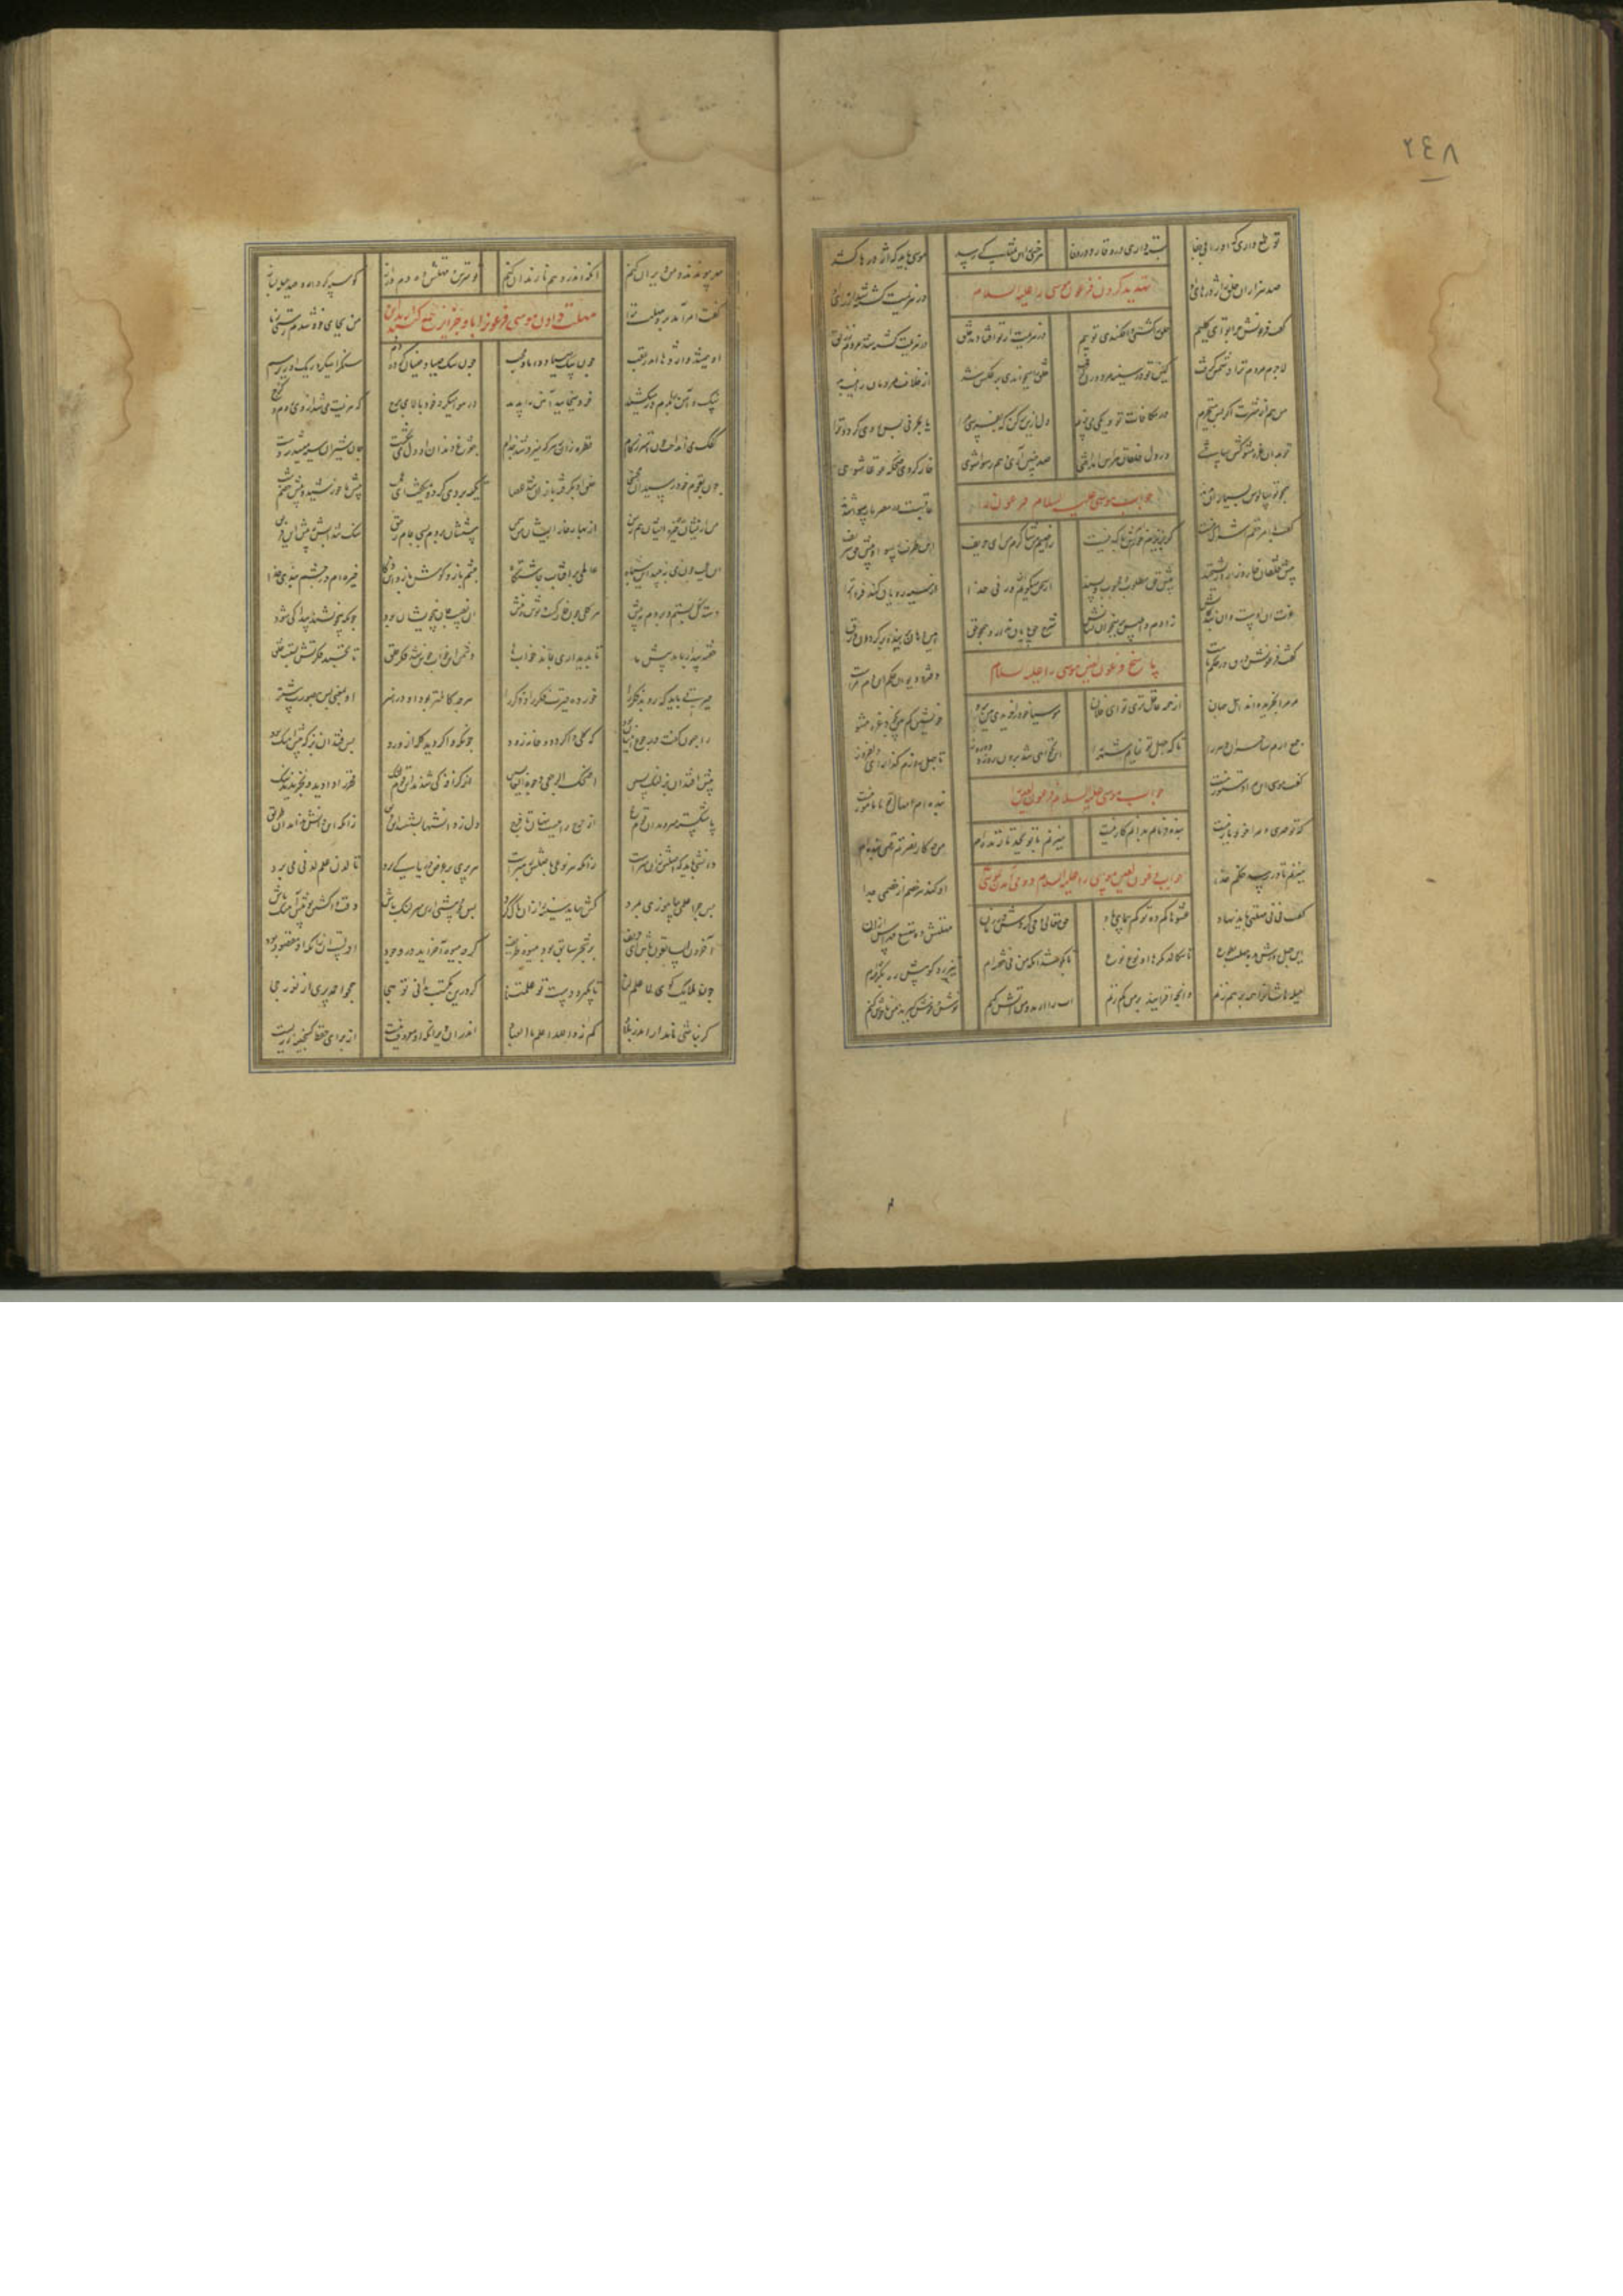 ٢٤٨
تو طمع داری که او را بی جفا بسته داری در وقار و در وفا
هر خسی را این تمنا کی رسد موسی باید که اژدرها کشد
صد هزاران خلق ز اژدرهای او در هزیمت کشته شد از رای او
تهدید کردن فرعون موسی را علیه السلام
گفت فرعونش چرا تو ای کلیم خلق را کشتی و افکندی تو بیم
در هزیمت از تو افتادند خلق در هزیمت کشته شد مردم ز زلق
لاجرم مردم ترا دشمن گرفت کین تو در سینه مرد و زن گرفت
خلق را میخواندی بر عکس شد از خلافت مردمان را نیست بد
من هم از شرت اگر پس میخزم در مکافات تو دیگی میپزم
دل ازین بر کن که بفریبی مرا یا بجز فی پس روی گردد ترا
تو بدان غره مشو کش ساختی در دل خلقان هراس انداختی
صد چنین آری و هم رسوا شوی خوار گردی ضحکه غوغا شوی
همچو تو سالوس بسیاران بدند عاقبت در مصر ما رسوا شدند
جواب موسی علیه السلام فرعون را
گفت با امر حقم اشراک نیست گر بریزد خونم امرش باک نیست
راضیم من شاکرم من ای حریف این طرف رسوا و پیش حق شریف
پیش خلقان خوار و زار و ریشخند پیش حق مطلوب و محبوب و پسند
از سخن میگویم این ورنی خدا از سیه رویان کند فردا ترا
عزت آن اوست و آن بندگانش ز آدم و ابلیس بر میخوان نشانش
شرح حق پایان ندارد همچو حق هین دهان بربند و برگردان ورق
گفت فرعونش ورق در حکم ماست دفتر و دیوان حکم این دم مراست
پاسخ فرعون لعین موسی را علیه السلام
مر مرا بخریده اند اهل جهان از همه عاقل تری تو ای فلان
موسیا خود را خریدی هین برو خویشتن کم بین بخود غره مشو
جمع آرم ساحران دهر را تا که جهل تو نمایم شهر را
این نخواهد شد بروزی و دو روز
گفت موسی این مرا دستور نیست بنده ام امهال تو مامور نیست
جواب موسی علیه السلام فرعون لعین
گر تو چیری و مرا خود یار نیست بنده فرمانم بدانم کار نیست
میزنم با تو بجد تا زنده ام من چه کاره نصرتم من بنده ام
میزنم تا در رسد حکم خدا او کند هر خصم از خصمی جدا
جواب فرعون لعین موسی را علیه السلام و وحی آمدن
گفت نی نی مهلتی باید نهاد عشوها کم ده تو کم پیمای باد
حق تعالی وحی کردش در زمان مهلتش ده متسع مهراس ازان
این چهل روزش بده مهلت بطوع تا سگالد مکرها او نوع نوع
تا بکوشد او که من نی خفته ام تیز رو گو پیش ره بگرفته ام
حیله هاشان را همه برهم زنم وانچه افزایند من بر کم زنم
آب را آرند و من آتش کنم نوش و خوش گیرند من ناخوش کنم
مهر پیوندند و من ویران کنم آنکه اندر وهم نارند آن کنم
تو مترس و مهلتش ده دم دراز گو سپه گرد آر و صد حیلت بساز
گفت امر آمد برو مهلت ترا من بجای خود شدم رستی ز ما
مهلت دادن موسی فرعون را تا
او میشد و اژدها اندر عقب چون سگ صیاد دانا و محب
چون سگ صیاد جنبان کرده دم سنگ را میکرد ریگ او زیر سم
سنگ و آهن را بدم در میکشید خرد میخایید آهن را پدید
در هوا میکرد خود بالای برج که هزیمت میشد از وی روم و گرج
کفک می انداخت چون اشتر ز کام قطره زان بر هر که میزد شد جذام
ژغژغ دندان او دل میشکست جان شیران سیه میشد ز دست
چون بقوم خود رسید آن مجتبی حلق او بگرفت باز او شد عصا
تکیه بر وی کرد و میگفت ای عجب پیش ما خورشید و پیش خصم شب
من ز ایشان خیره ایشان هم ز من از بهاری خار ایشان من سمن
پیششان بردم بسی جام رحیق سنگ شد آبش به پیش این فریق
ای عجب چون می نبیند این سپاه عالمی پر آفتاب چاشتگاه
چشم باز و گوش باز و این ذکا خیره ام در چشم بندی خدا
دسته گل بستم و بردم به پیش هر گلی چون خار گشت و نوش نیش
آن نصیب جان بی خویشان بود چونکه بی خویشند پیدا کی شود
خفته بیدار باید پیش ما تا به بیداری خوابها
دشمن این خواب خوش شد فکر خلق تا نخسپد فکرتش بستست حلق
حیرتی باید که روبد فکر را خورده حیرت فکر را و ذکر را
هر که کاملتر بود او در هنر او بمعنی پس بصورت پیشتر
راجعون گفت و رجوع این سان بود که گله وا گردد و خانه رود
چونکه وا گردید گله از ورود پس فتد آن بز که پیش آهنگ بود
پیش افتد آن بز لنگ پسین اضحک الرجعی وجوه العابسین
از گزافه کی شدند این قوم لنگ فخر را دادند و بخریدند ننگ
پا شکسته میروند این قوم حج از حرج راهیست پنهان تا فرج
دل ز دانشها بشستند این فریق زانکه این دانش نداند آن طریق
دانشی باید که اصلش زان سرست زانکه هر فرعی به اصلش رهبرست
هر پری بر عرض دریا کی پرد تا لدن علم لدنی می برد
پس چرا علمی بیاموزی بمرد کش بباید سینه را زان پاک کرد
پس مجو پیشی ازین سر لنگ باش وقت وا گشتن تو پیش آهنگ باش
آخرون السابقون باش ای حریف بر شجر سابق بود میوه طریف
گرچه میوه آخر آید در وجود اولست او زانکه او مقصود بود
چون ملایک گوی لا علم لنا تا بگیرد دست تو علمتنا
گر درین مکتب ندانی تو هجا همچو احمد پری از نور حجی
گر نباشی نامدار اندر بلاد کم نه الله اعلم بالعباد
اندر آن ویرانه کو معروف نیست از برای حفظ گنجینه زریست